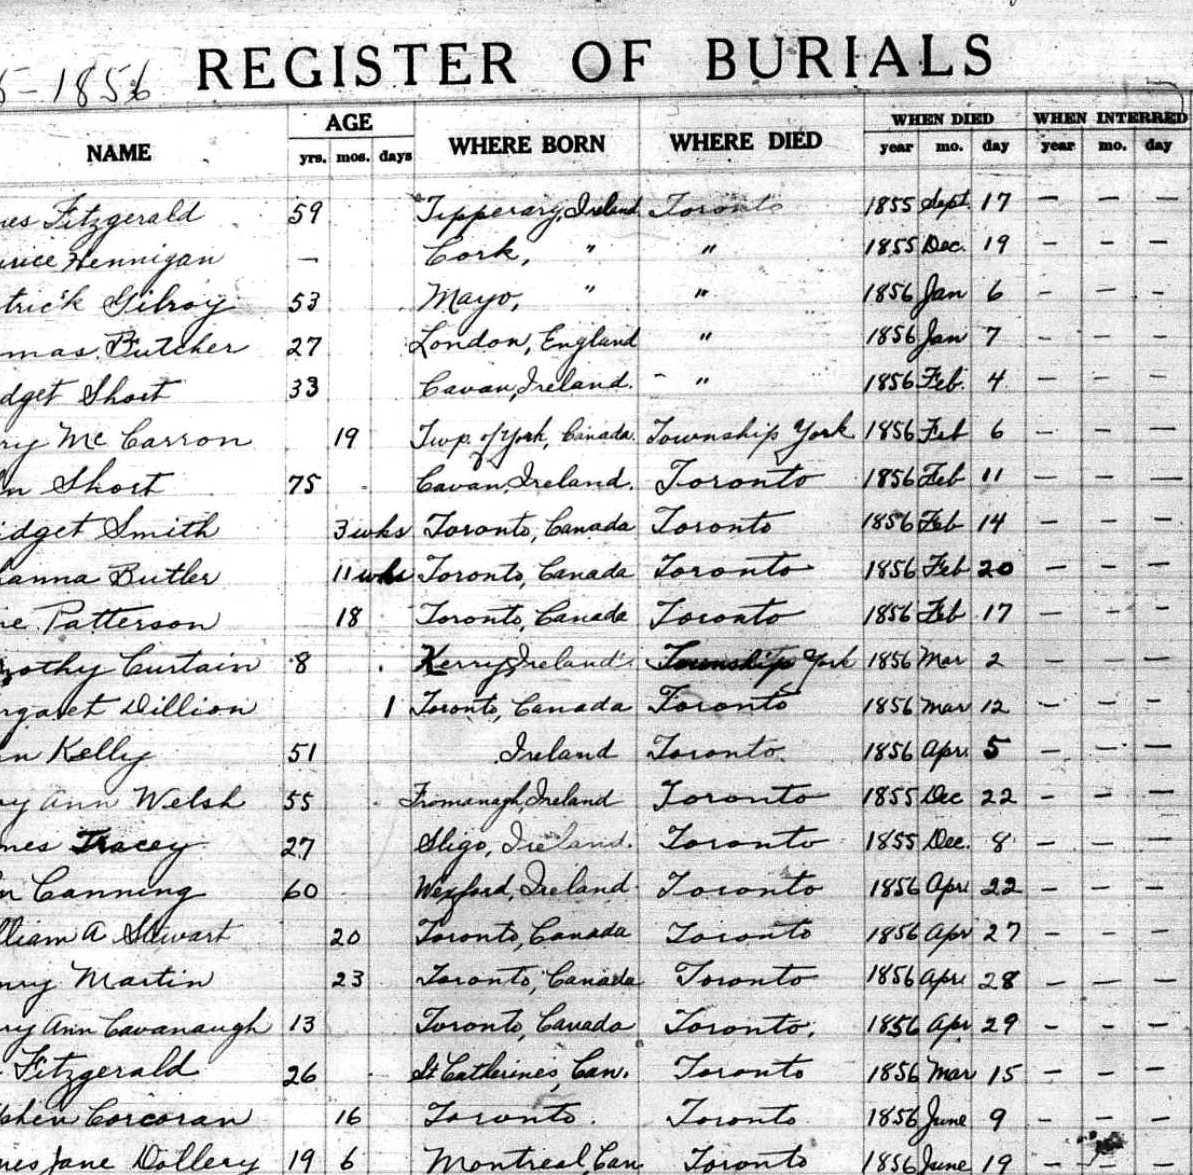 5-1856 REGISTER OF BURIALS
AGE WHEN DIED WHEN INTERRED
NAME yrs. mos. days WHERE BORN WHERE DIED year mo. day year mo. day
es Fitzgerald 59 Tipperary, Ireland Toronto 1855 Sept. 17 — — —
Hennigan — Cork, " " 1855 Dec. 19 — — —
trick Gilroy 53 Mayo, " " 1856 Jan 6 — — —
mas Butcher 27 London, England " 1856 Jan 7 — — —
dget Short 33 Cavan, Ireland. " 1856 Feb. 4 — — —
ry Mc Carron 19 Twp. of York, Canada. Township York 1856 Feb 6 — — —
n Short 75 Cavan, Ireland. Toronto 1856 Feb 11 — — —
idget Smith 3 wks Toronto, Canada Toronto 1856 Feb 14 — — —
anna Butler 11 wks Toronto, Canada Toronto 1856 Feb 20 — — —
e Patterson 18 Toronto, Canada Toronto 1856 Feb 17 — — —
othy Curtain 8 Kerry, Ireland. Township York 1856 Mar 2 — — —
rgaret Dillion 1 Toronto, Canada Toronto 1856 Mar 12 — — —
n Kelly 51 Ireland Toronto 1856 Apr. 5 — — —
ry Ann Welsh 55 Fromanagh, Ireland Toronto 1855 Dec 22 — — —
mes Tracey 27 Sligo, Ireland. Toronto 1855 Dec. 8 — — —
n Canning 60 Wexford, Ireland Toronto 1856 Apr. 22 — — —
lliam A Stewart 20 Toronto, Canada Toronto 1856 Apr 27 — — —
nry Martin 23 Toronto, Canada Toronto 1856 Apr. 28 — — —
ry Ann Cavanaugh 13 Toronto, Canada Toronto. 1856 Apr 29 — — —
Fitzgerald 26 St Catherines, Can. Toronto 1856 Mar 15 — — —
phen Corcoran 16 Toronto. Toronto 1856 June 9 — — —
es Jane Dollery 19 6 Montreal, Can. Toronto 1856 June 19 — — —